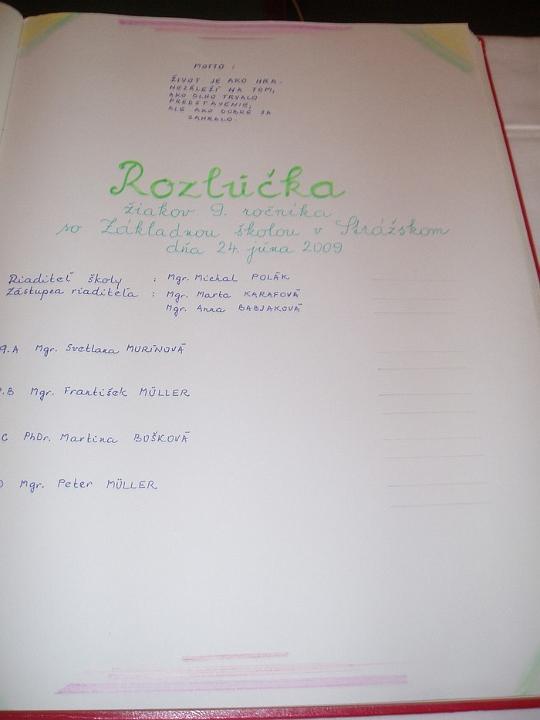 MOTTO :
ŽIVOT JE AKO HRA.
NEZÁLEŽÍ NA TOM,
AKO DLHO TRVALO
PREDSTAVENIE,
ALE AKO DOBRE SA
ZAHRALO.
Rozlúčka
žiakov 9. ročníka
so Základnou školou v Strážskom
dňa 24. júna 2009
Riaditeľ školy : Mgr. Michal POLÁK
Zástupca riaditeľa : Mgr. Marta KARAFOVÁ
Mgr. Anna BABJAKOVÁ
9.A Mgr. Svetlana MURÍNOVÁ
.B Mgr. František MÜLLER
C PhDr. Martina BOŠKOVÁ
Mgr. Peter MÜLLER